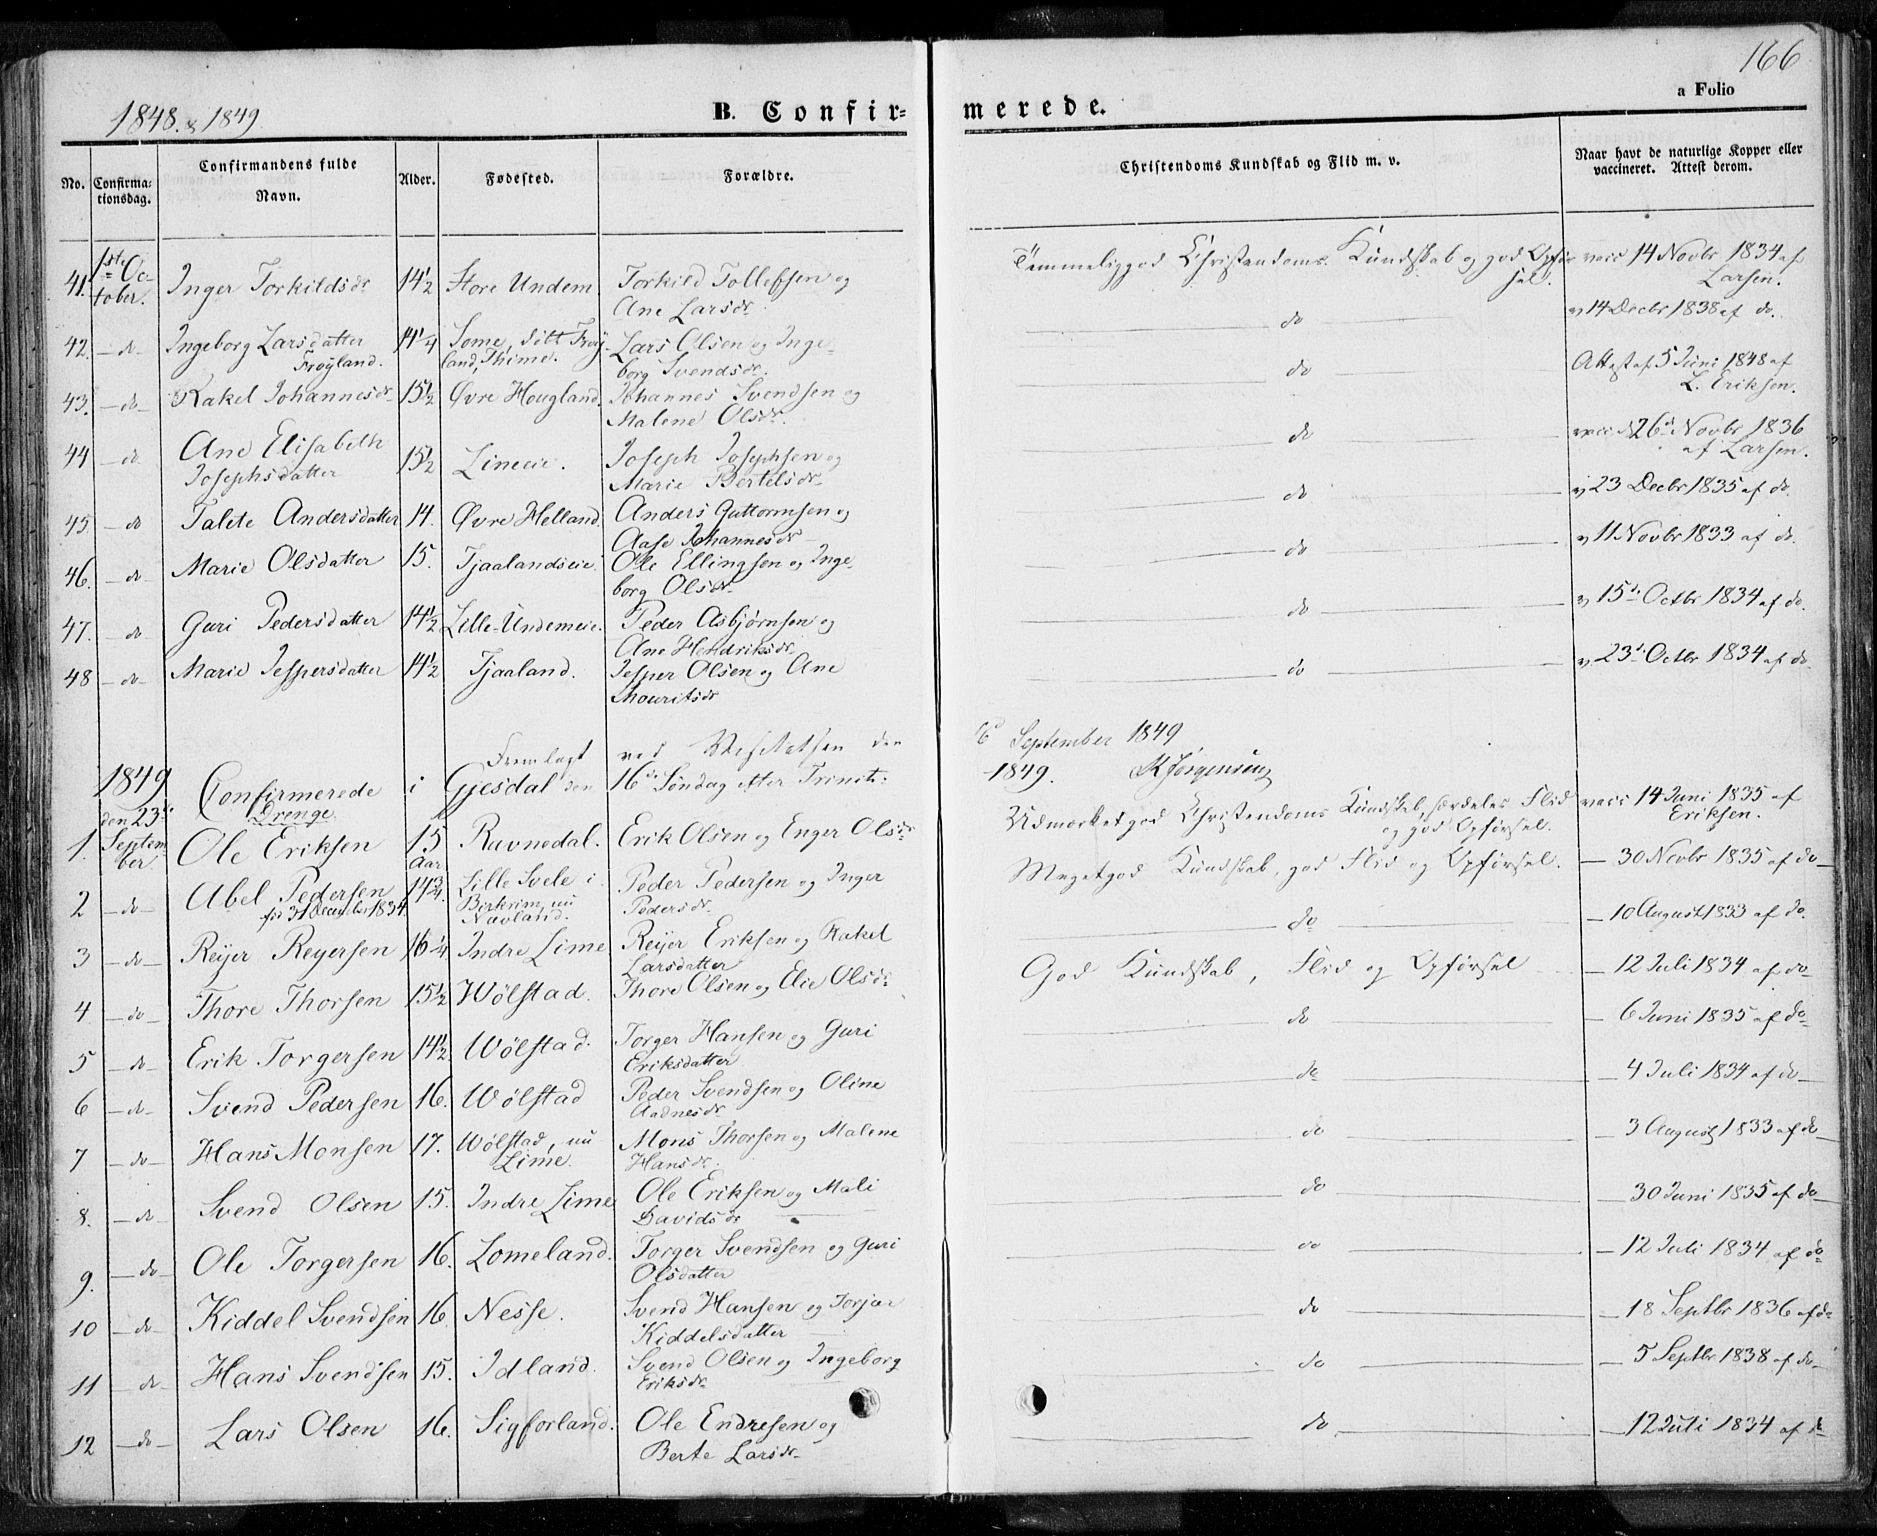 166
a Folio
1848. & 1849
B. Confir-
merede.
No.
Confirma-
tionsdag.
Confirmandens fulde
Navn.
Alder.
Fødested.
Forældre.
Christendoms Kundskab og Flid m. v.
Naar havt de naturlige Kopper eller
vaccineret. Attest derom.
41. 1ste Oc-
tober. Inger Torkildsdr 14½ Store Undem Torkild Tollefsen og
Ane Larsdr. Temmeliggod Christendoms Kundskab og god Opfør
sel. vacc 14 Novbr 1834 af
Larsen.
42. - do - Ingeborg Larsdatter
Frøyland. 14¼ Some, Frøy-
land, Thime. Lars Olsen og Inge-
borg Svendsdr. do v 14 Decbr 1838 af do.
43. - do - Rakel Johannesdr 15½ Øvre Hougland. Johannes Svendsen og
Malene Olsdr. do Attest af 5 Juni 1848 af
L. Eriksen.
44 - do Ane Elisabeth
Josephsdatter 15½ Limeeie. Joseph Josephsen og
Marie Bertelsdr do vacc d 26de Novbr 1836
af Larsen.
45. - do Talete Andersdatter 14. Øvre Helland. Anders Guttormsen og
Aase Johannesdr do v 23 Decbr 1835 af do.
46. - do Marie Olsdatter 15. Tjaalandseie. Ole Ellingsen og Inge-
borg Olsdr do v 11 Novbr 1833 af do.
47. - do Guri Pedersdatter 14½ Lille-Undemeie. Peder Asbjørnsen og
Ane Hendriksdr do v 15de Octbr 1834 af do.
48 - do - Marie Jespersdatter 14½ Tjaaland. Jesper Olsen og Ane
Mouritsdr do v 23de Octbr 1834 af do
Fremlagt ved Visitatsen den 6 September 1849
1849 Confirmerede i Gjesdal den 16de Søndag efter Trinit. 1849. Jørgensen
Drenge.
1. den 23de
Septem
ber. Ole Eriksen 15
Aar Ravnedal. Erik Olsen og Enger Olsdr Udmærketgod Christendoms Kundskab, særdeles Flid
og god Opførsel. vacc 14 Juni 1835 af
Eriksen.
2 - do - Abel Pedersen
fød 31 December 1834. 14¾. Lille Svele i
Birkrim, nu
Nævland. Peder Pedersen og Inger
Pedersdr. Megetgod Kundskab, god Flid og Opførsel. - 30 Novbr 1835 af do -
3 - do - Reijer Reyersen 16¼ Indre Lime Reijer Eriksen og Rakel
Larsdatter do - 10 August 1833 af do.
4 - do - Thore Thorsen 15½ Wølstad. Thore Olsen og Elie Olsdr God Kundskab, Flid og Opførsel - 12 Juli 1834 af do -
5 - do - Erik Torgersen 14½ Wølstad. Torger Hansen og Guri
Eriksdatter do - 6 Juni 1835 af do -
6 - do - Svend Pedersen 16. Wølstad Peder Svendsen og Oline
Aadnesdr. do - 4 Juli 1834 af do -
7 - do - Hans Monsen 17. Wølstad, nu
Lime. Mons Thorsen og Malene
Hansdr. do - 3 August 1833 af do -
8. - do - Svend Olsen 15. Indre Lime Ole Eriksen og Mali
Davidsdr do - 30 Juni 1835 af do -
9. - do - Ole Torgersen 16. Lomeland. Torger Svendsen og Guri
Olsdatter do - 12 Juli 1834 af do -
10 - do - Kiddel Svendsen 16 Nesse. Svend Hansen og Torjer
Kiddelsdatter do - 18 Septbr 1836 af do -
11 - do - Hans Svendsen 15. Idland. Svend Olsen og Ingeborg
Eriksdr do - 5 Septbr 1838 af do -
12 - do - Lars Olsen 16. Sigforland. Ole Endresen og
Berte Larsdr do - 12 Juli 1834 af do